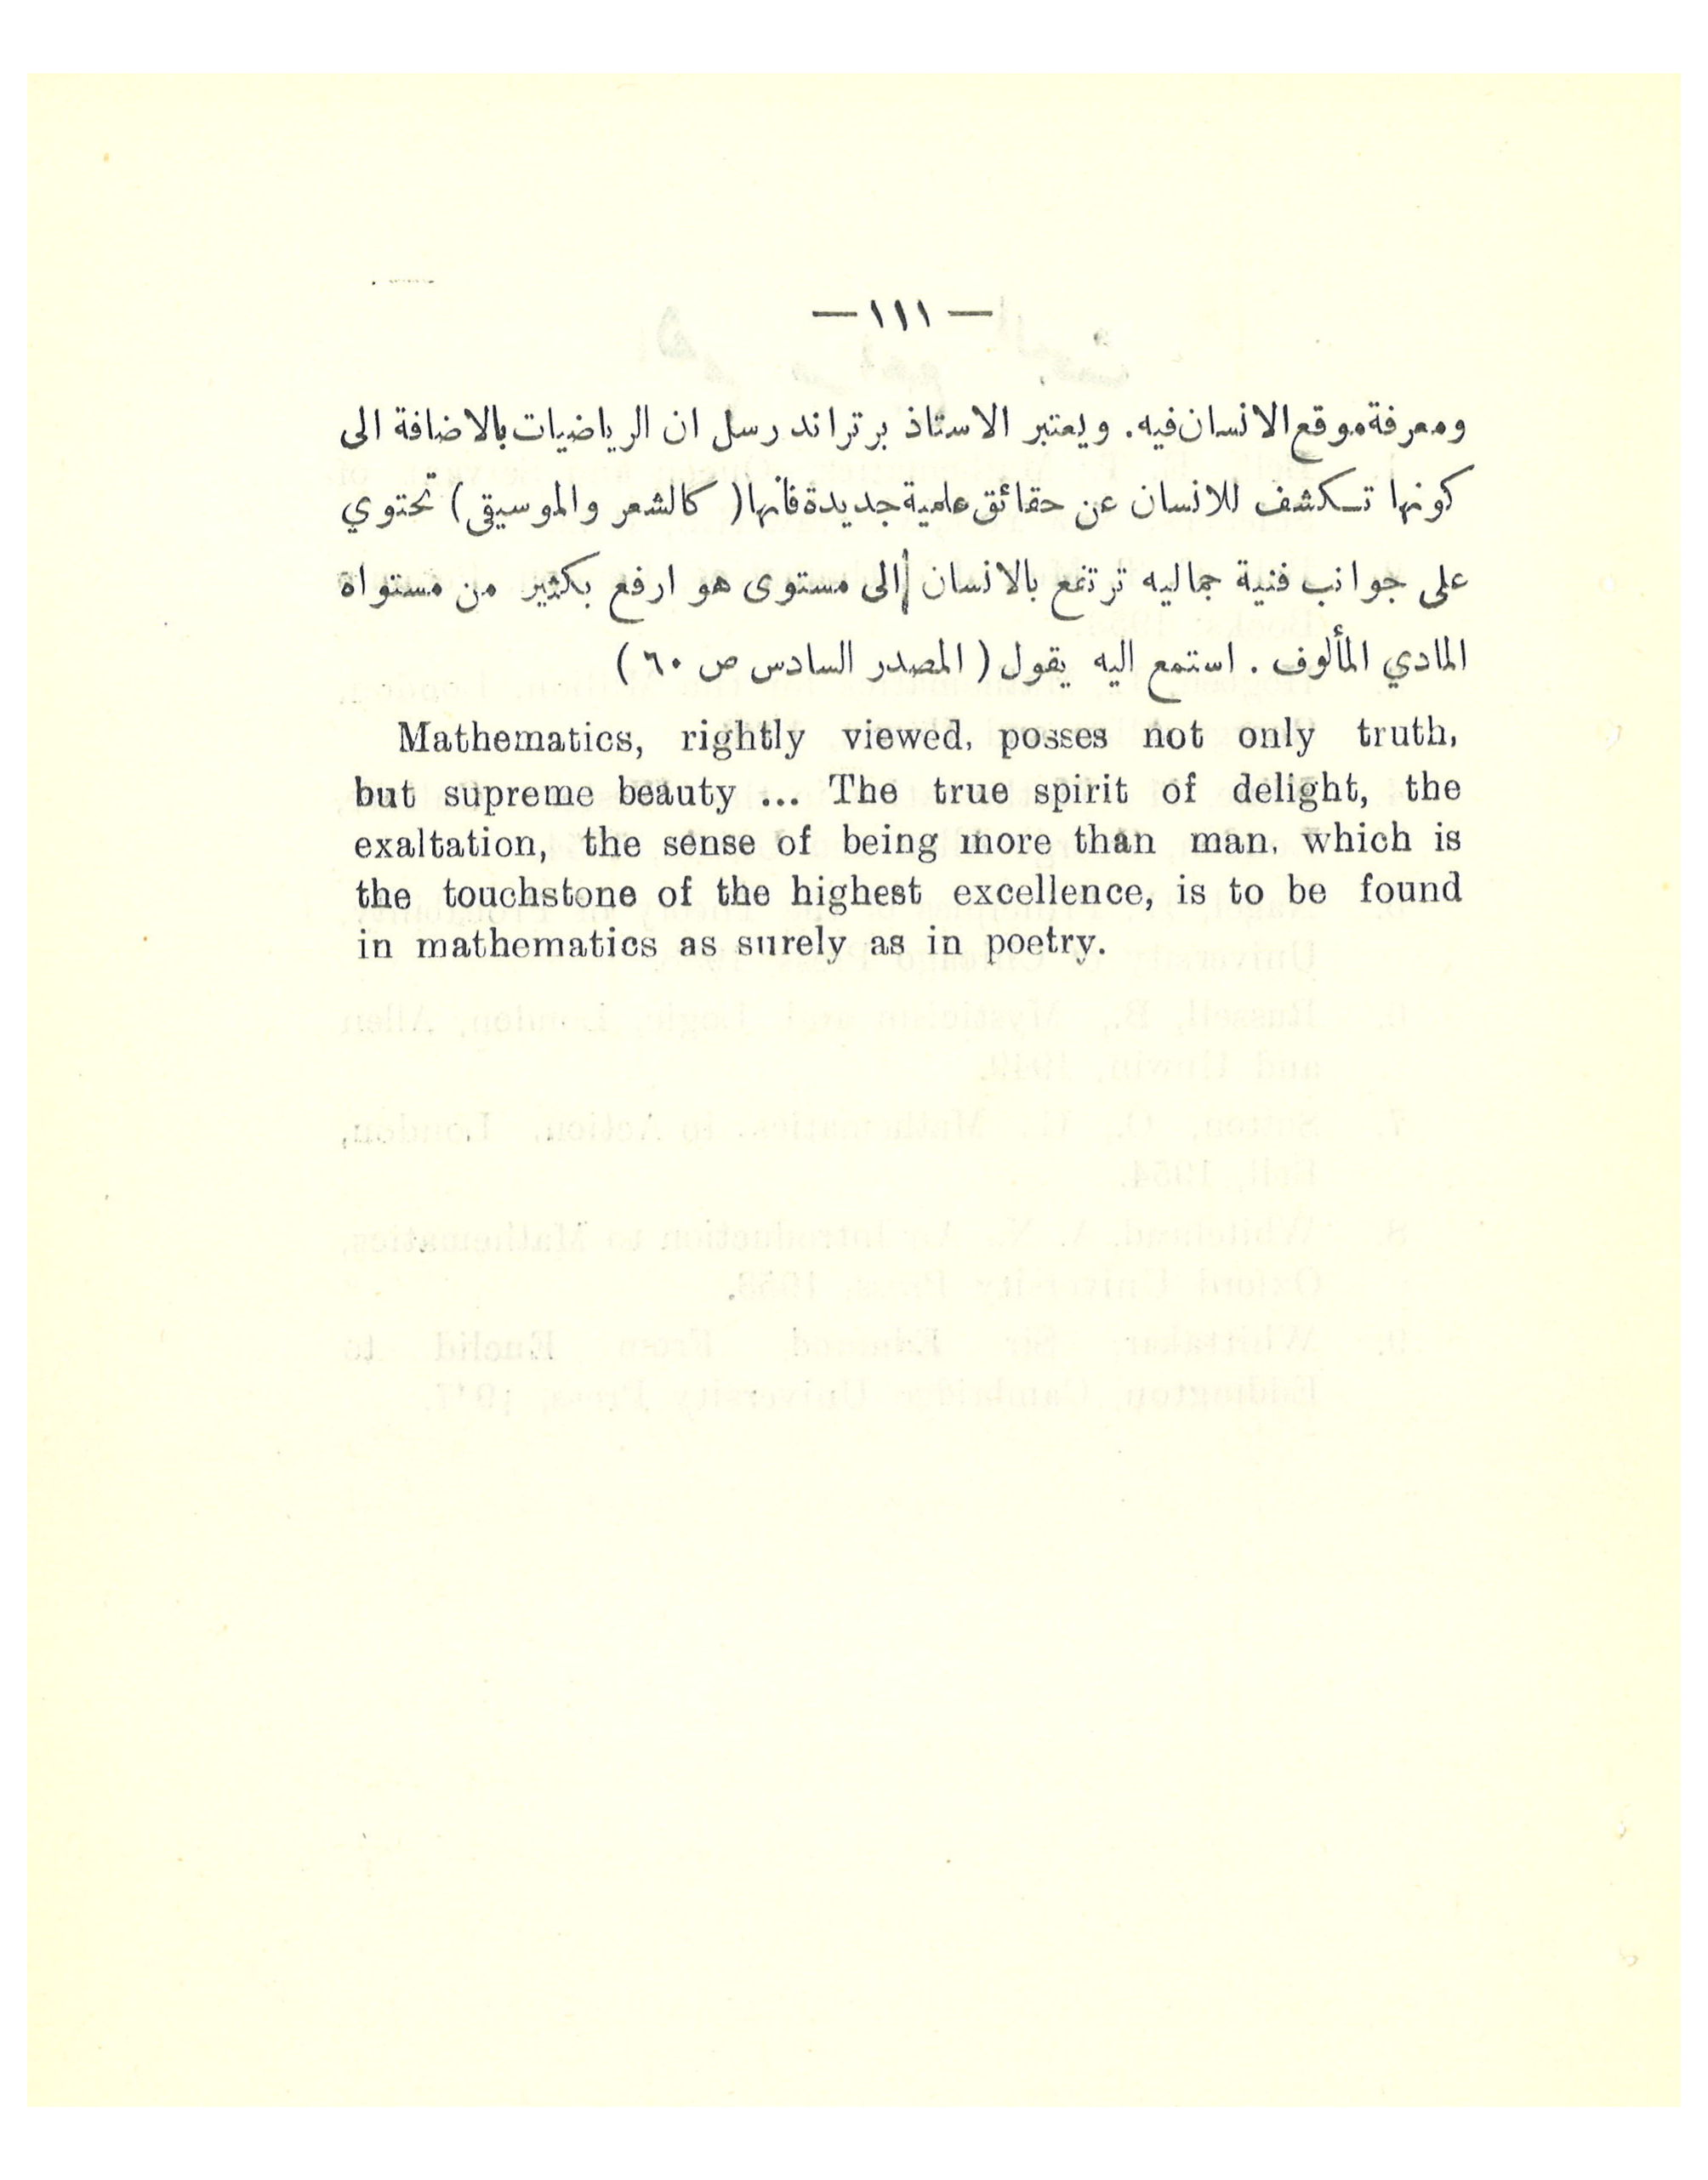 — ١١١ —
ومعرفة موقع الانسان فيه. ويعتبر الاستاذ برتراند رسل ان الرياضيات بالاضافة الى
كونها تكشف للانسان عن حقائق علمية جديدة فأنها ( كالشعر والموسيقى ) تحتوي
على جوانب فنية جماليه ترتفع بالانسان إلى مستوى هو ارفع بكثير من مستواة
المادي المألوف . استمع اليه يقول ( المصدر السادس ص ٦٠ )
Mathematics, rightly viewed, posses not only truth,
but supreme beauty ... The true spirit of delight, the
exaltation, the sense of being more than man, which is
the touchstone of the highest excellence, is to be found
in mathematics as surely as in poetry.